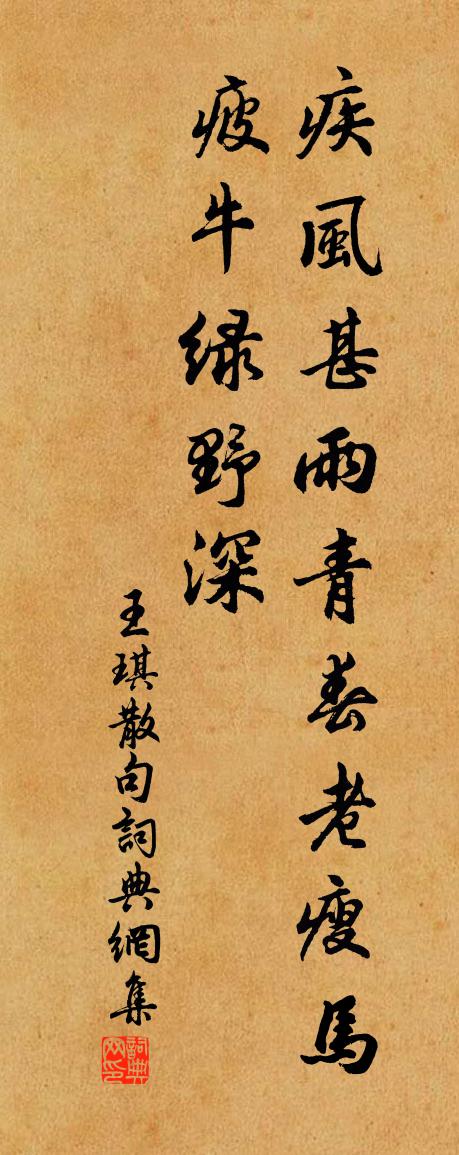 疾風甚雨青春老瘦馬
疲牛绿野深
王琪散句詞典網集
詞典網印